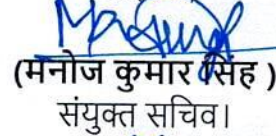 (मनोज कुमार सिंह )
संयुक्त सचिव।